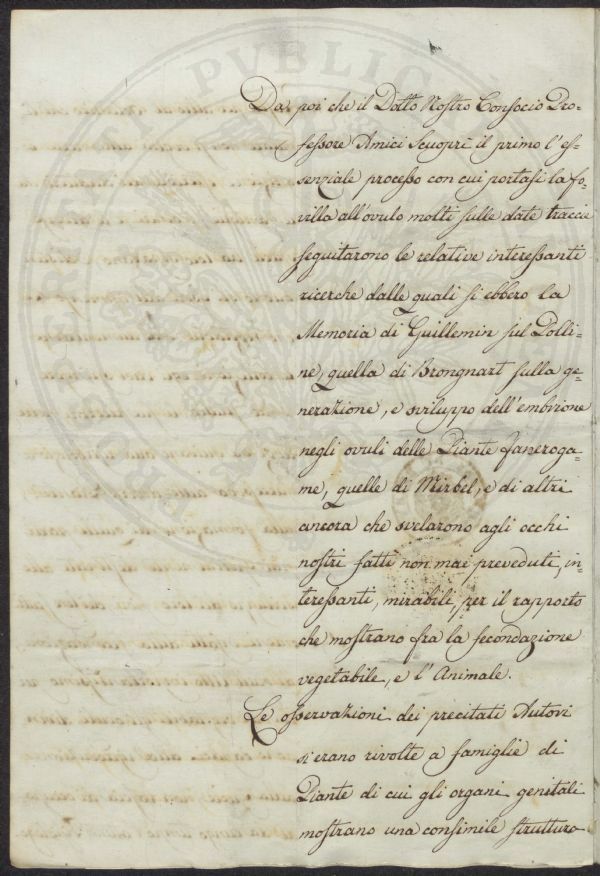 Da poi che il Dotto Nostro Consocio Pro=
fessore Amici Scuoprì il primo l'es=
senziale processo con cui portasi la fo=
villa all'ovulo molti sulle date traccie
seguitarono le relative interessanti
ricerche dalle quali si ebbero la
Memoria di Guillemin sul Polli=
ne, quella di Brongnart sulla ge=
nerazione, e sviluppo dell'embrione
negli ovuli delle Piante faneroga=
me, quelle di Mirbel, e di altri
ancora che svelarono agli occhi
nostri fatti non mai preveduti, in=
teressanti, mirabili per il rapporto
che mostrano fra la fecondazione
vegetabile, e l'Animale.
Le osservazioni dei precitati Autori
si erano rivolte a famiglie di
Piante di cui gli organi genitali
mostrano una consimile struttura